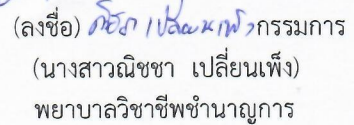 (ลงชื่อ) ณิชชา เปลี่ยนเพ็ง กรรมการ
(นางสาวณิชชา เปลี่ยนเพ็ง)
พยาบาลวิชาชีพชำนาญการ